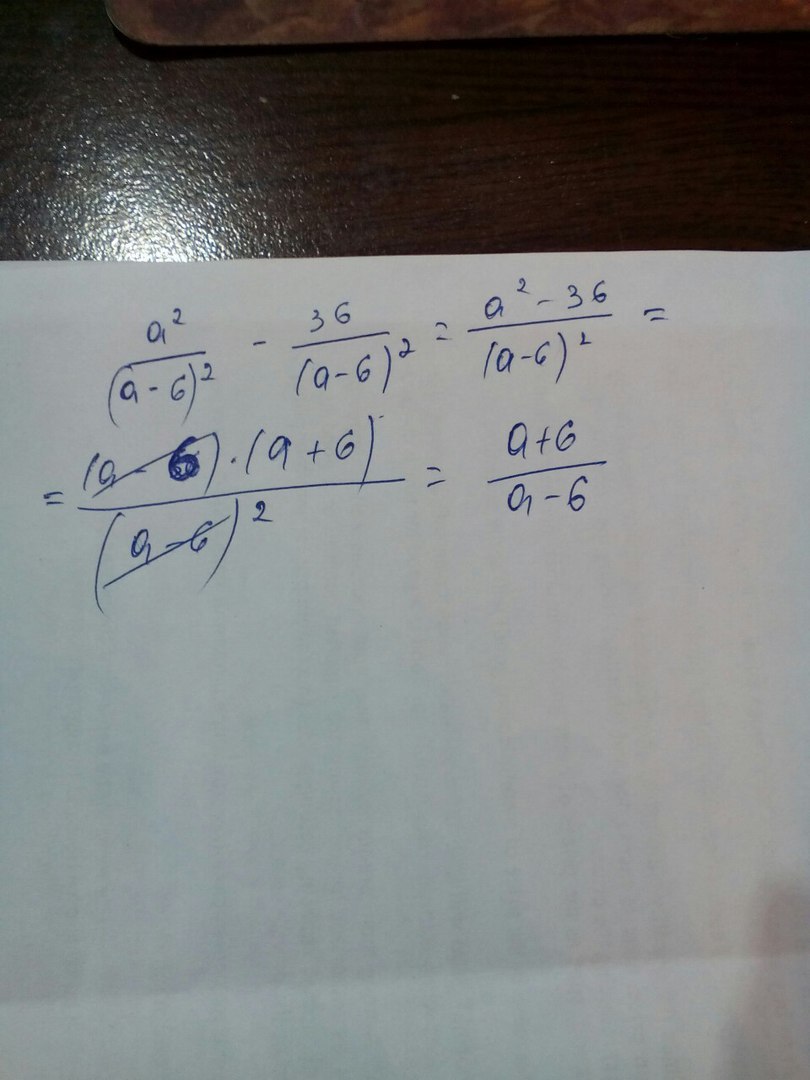 a²/(a-6)² - 36/(a-6)² = (a²-36)/(a-6)² =
= (a-6)·(a+6)/(a-6)² = (a+6)/(a-6)